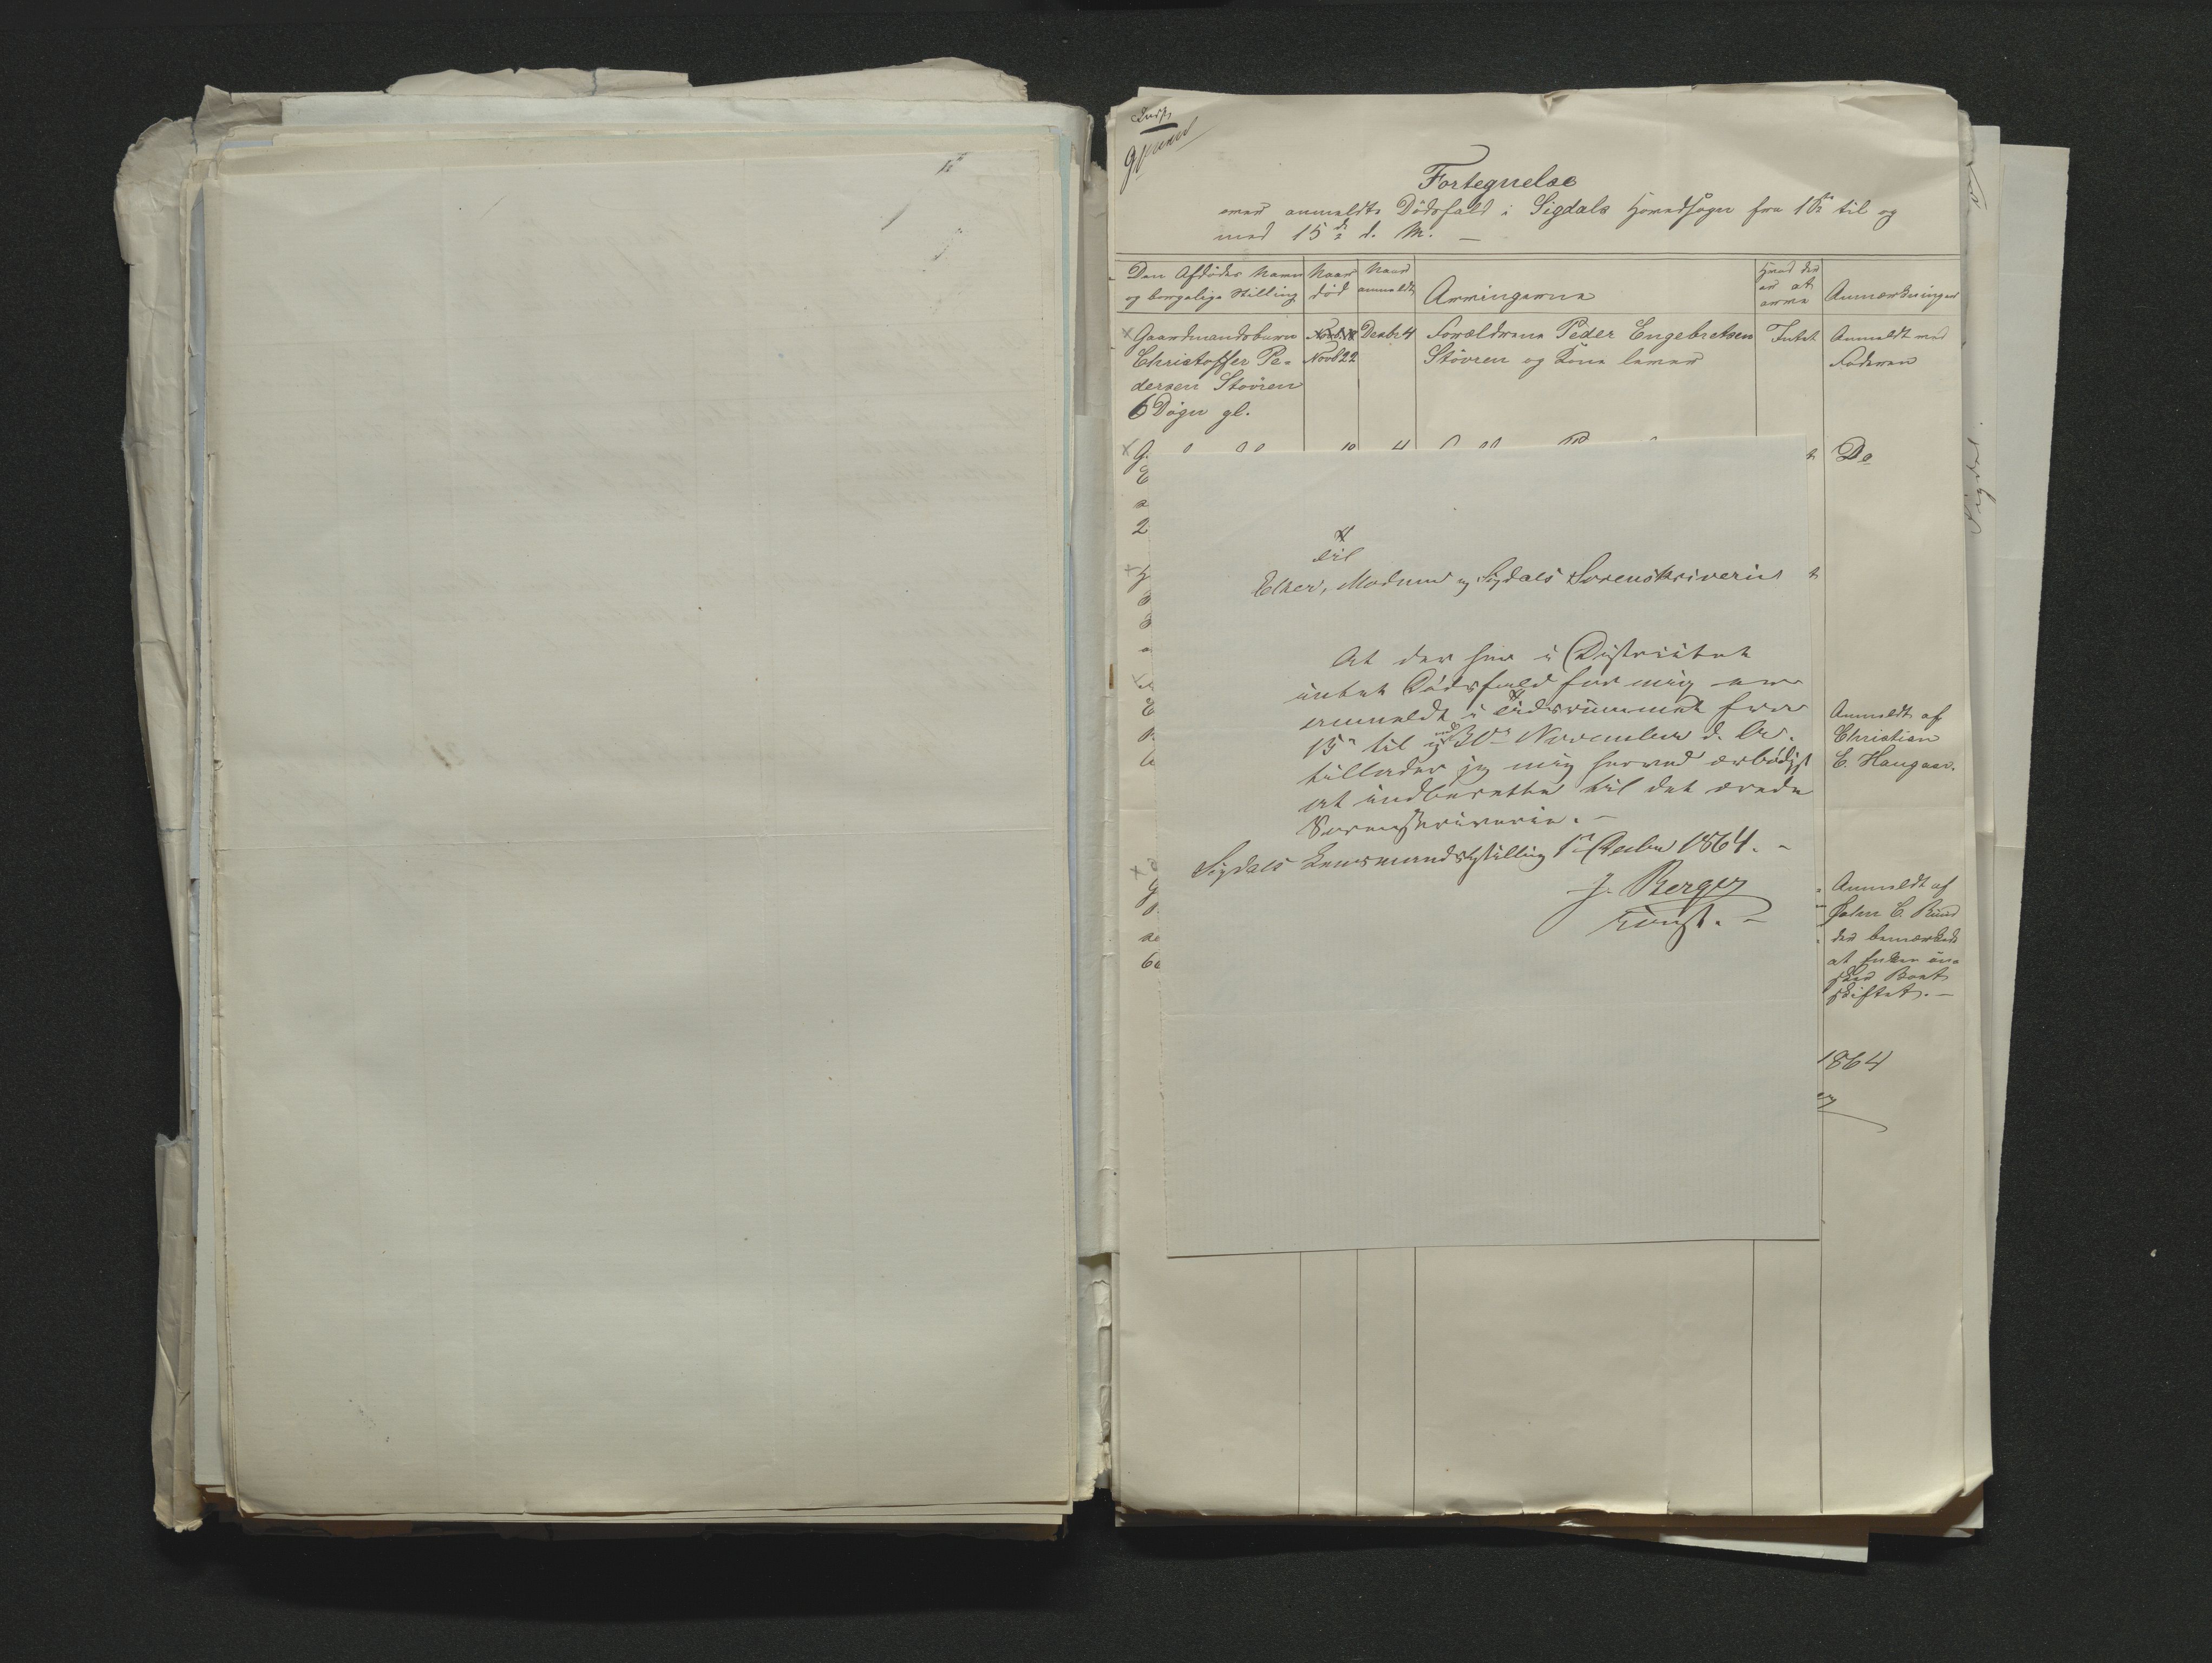 Fortegnelse
over anmeldte Dödsfald i Sigdals Hovedsogn fra 1ste til og
med 15de d. M. —
Den Afdödes Navn
og borgerlige Stilling
Naar
död
Naar
anmeldt
Arvingerne
Hvad der
er at
arve
Anmærkninger
Gaardmandsbarn
Christoffer Pe-
dersen Stovren
6 Dögn gl.
Novb 22
Decbr 4
Forældrene Peder Engebretsen
Stövren og Kone lever
Intet
Anmeldt ved
Faderen
Do
Anmeldt af
Christian
E. Haugan.
Anmeldt af
John C.
der bemærkede
at Enken ön-
sker Boet
skiftet. —
1864
Til
Eker, Modum og Sigdals Sorenskriverie
At der her i Distriktet
intet Dödsfald for mig er
anmeldt i Tidsrummet fra
15de til og med 30te November d. A.
tillader jeg mig herved ærbödigst
at indberette til det ærede
Sorenskriverie. —
Sigdals Lensmandsbestilling 1ste Decbr 1864. —
J. Berger
konst. —
Sigdal.